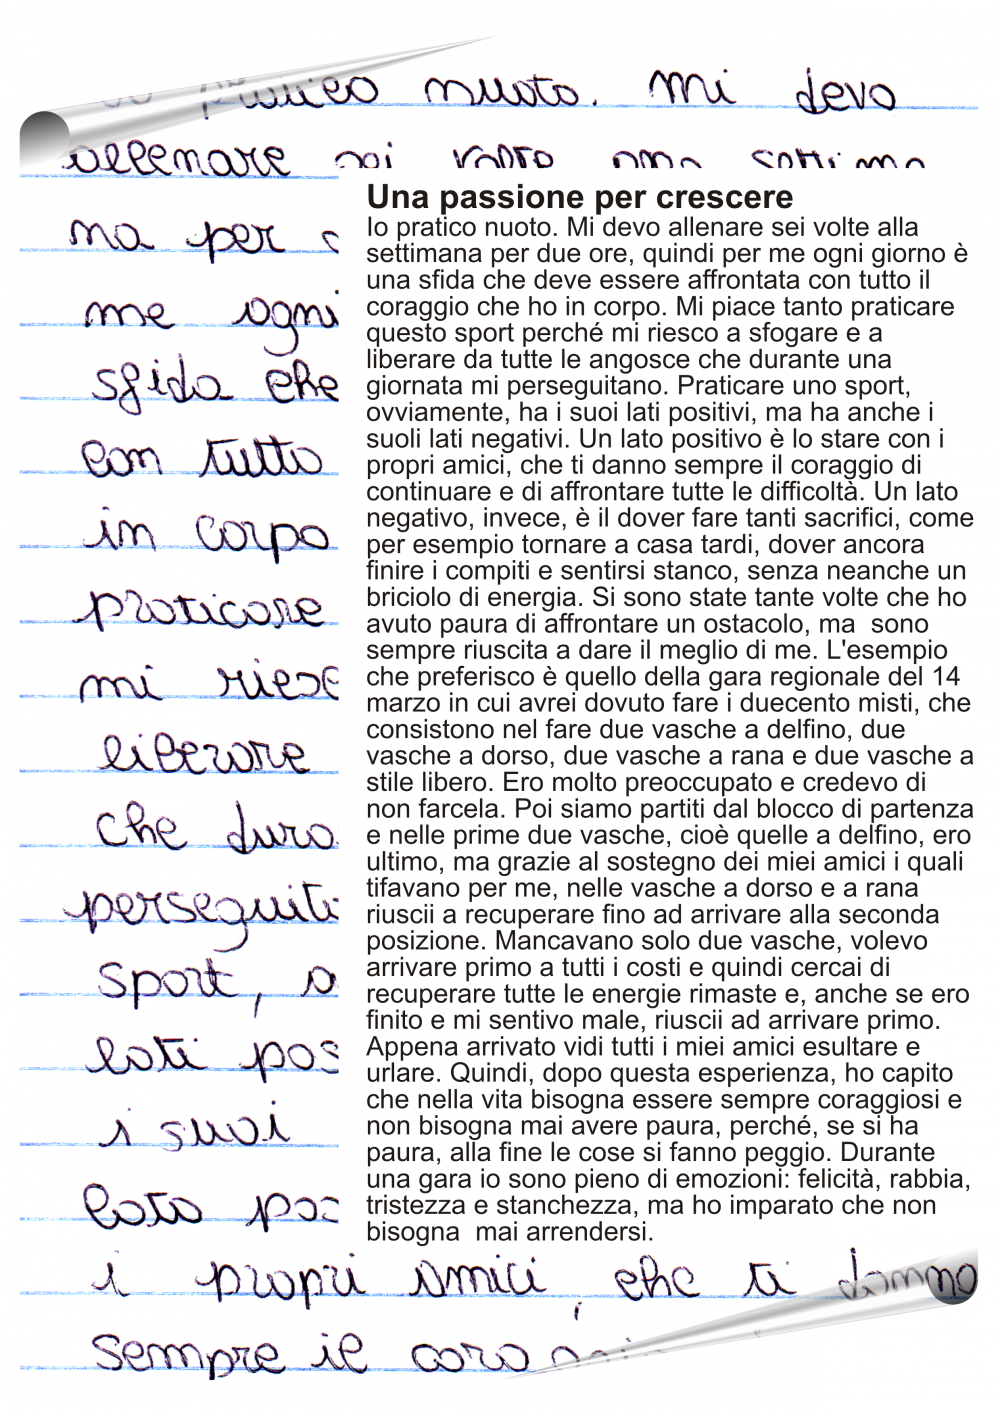 pratico nuoto. Mi devo
allenare sei volte
ma per
me ogni
sfida che
con tutto
in corpo
praticare
mi riesc
liberare
che dura
perseguit
sport, o
lati pos
i suoi
lato pos
i propri amici, che ti danno
sempre il corag
Una passione per crescere
Io pratico nuoto. Mi devo allenare sei volte alla
settimana per due ore, quindi per me ogni giorno è
una sfida che deve essere affrontata con tutto il
coraggio che ho in corpo. Mi piace tanto praticare
questo sport perché mi riesco a sfogare e a
liberare da tutte le angosce che durante una
giornata mi perseguitano. Praticare uno sport,
ovviamente, ha i suoi lati positivi, ma ha anche i
suoli lati negativi. Un lato positivo è lo stare con i
propri amici, che ti danno sempre il coraggio di
continuare e di affrontare tutte le difficoltà. Un lato
negativo, invece, è il dover fare tanti sacrifici, come
per esempio tornare a casa tardi, dover ancora
finire i compiti e sentirsi stanco, senza neanche un
briciolo di energia. Si sono state tante volte che ho
avuto paura di affrontare un ostacolo, ma  sono
sempre riuscita a dare il meglio di me. L'esempio
che preferisco è quello della gara regionale del 14
marzo in cui avrei dovuto fare i duecento misti, che
consistono nel fare due vasche a delfino, due
vasche a dorso, due vasche a rana e due vasche a
stile libero. Ero molto preoccupato e credevo di
non farcela. Poi siamo partiti dal blocco di partenza
e nelle prime due vasche, cioè quelle a delfino, ero
ultimo, ma grazie al sostegno dei miei amici i quali
tifavano per me, nelle vasche a dorso e a rana
riuscii a recuperare fino ad arrivare alla seconda
posizione. Mancavano solo due vasche, volevo
arrivare primo a tutti i costi e quindi cercai di
recuperare tutte le energie rimaste e, anche se ero
finito e mi sentivo male, riuscii ad arrivare primo.
Appena arrivato vidi tutti i miei amici esultare e
urlare. Quindi, dopo questa esperienza, ho capito
che nella vita bisogna essere sempre coraggiosi e
non bisogna mai avere paura, perché, se si ha
paura, alla fine le cose si fanno peggio. Durante
una gara io sono pieno di emozioni: felicità, rabbia,
tristezza e stanchezza, ma ho imparato che non
bisogna  mai arrendersi.